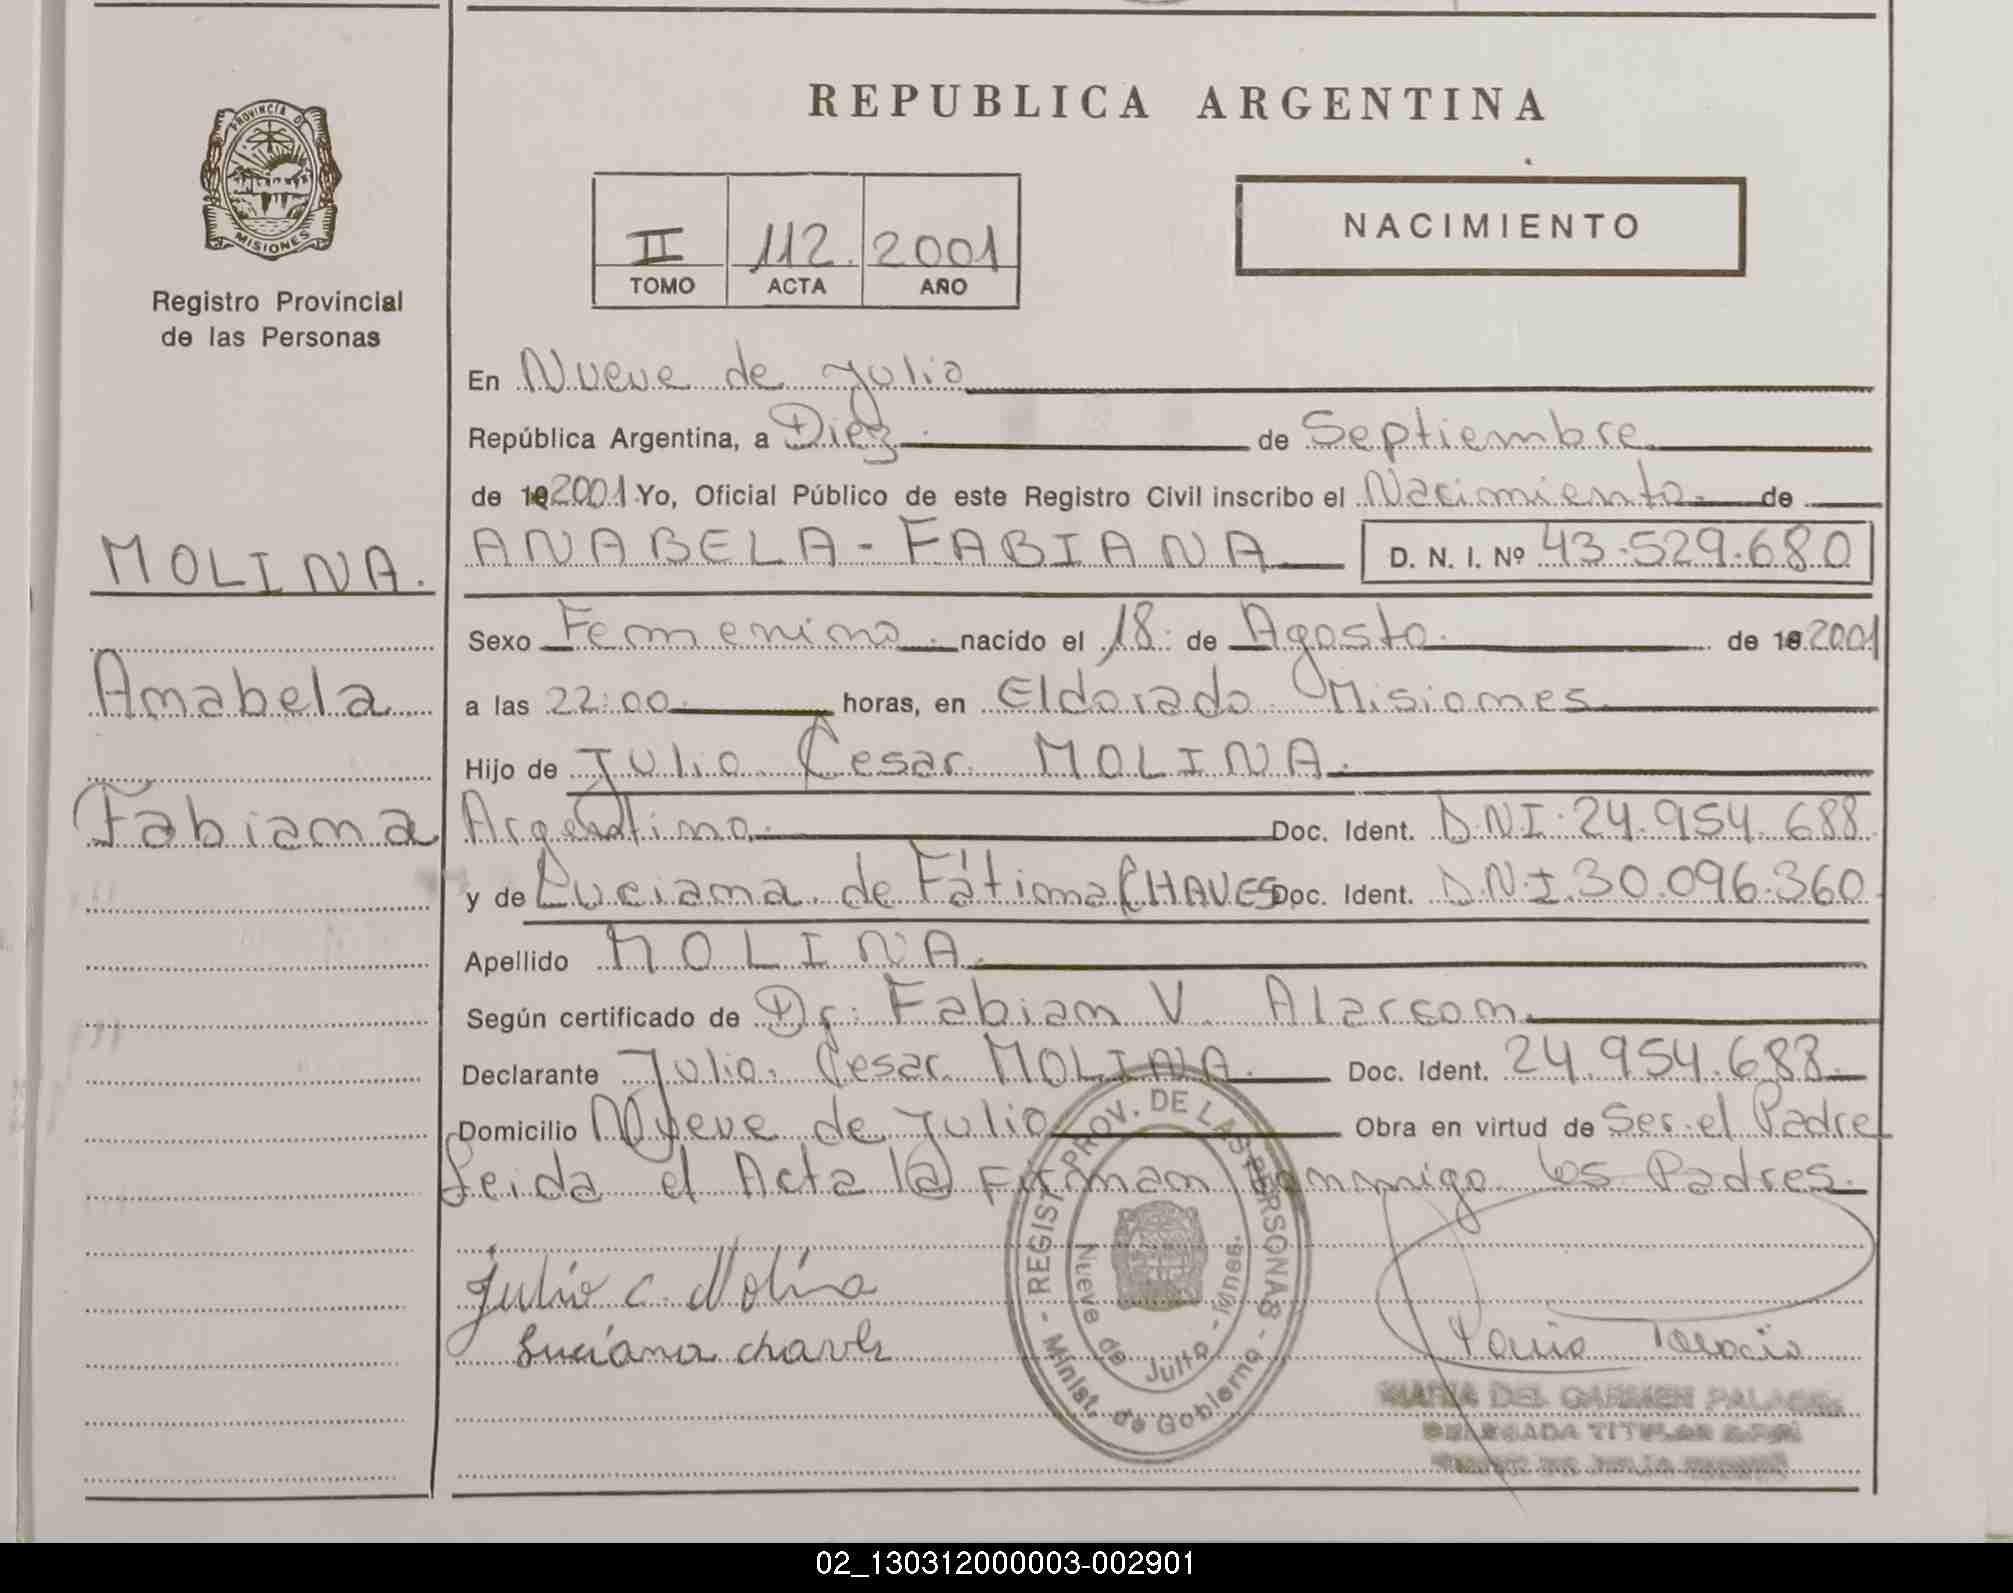 PROVINCIA DE
MISIONES
Registro Provincial
de las Personas
MOLINA.
Anabela
Fabiana
REPUBLICA ARGENTINA
II 112. 2001
TOMO ACTA AÑO
NACIMIENTO
En Nueve de Julio
República Argentina, a Diez de Septiembre
de 192001 Yo, Oficial Público de este Registro Civil inscribo el Nacimiento de
ANABELA - FABIANA D. N. I. Nº 43.529.680
Sexo Femenino. nacido el 18 de Agosto de 192001
a las 22:00 horas, en Eldorado Misiones
Hijo de Julio Cesar MOLINA.
Argentino Doc. Ident. D.N.I. 24.954.688
y de Luciana de Fátima CHAVES Doc. Ident. D.N.I. 30.096.360
Apellido MOLINA.
Según certificado de Dr. Fabian V. Alarcon
Declarante Julio Cesar MOLINA. Doc. Ident. 24.954.688
Domicilio Nueve de Julio Obra en virtud de Ser el Padre
Leida el Acta la Firman conmigo los Padres.
Julio C. Molina
Luciana Chavez
REGIST. PROV. DE LAS PERSONAS - Minist. de Gobierno -
Nueve de Julio - Mnes.
MARIA DEL CARMEN
DELEGADA TITULAR
02_130312000003-002901